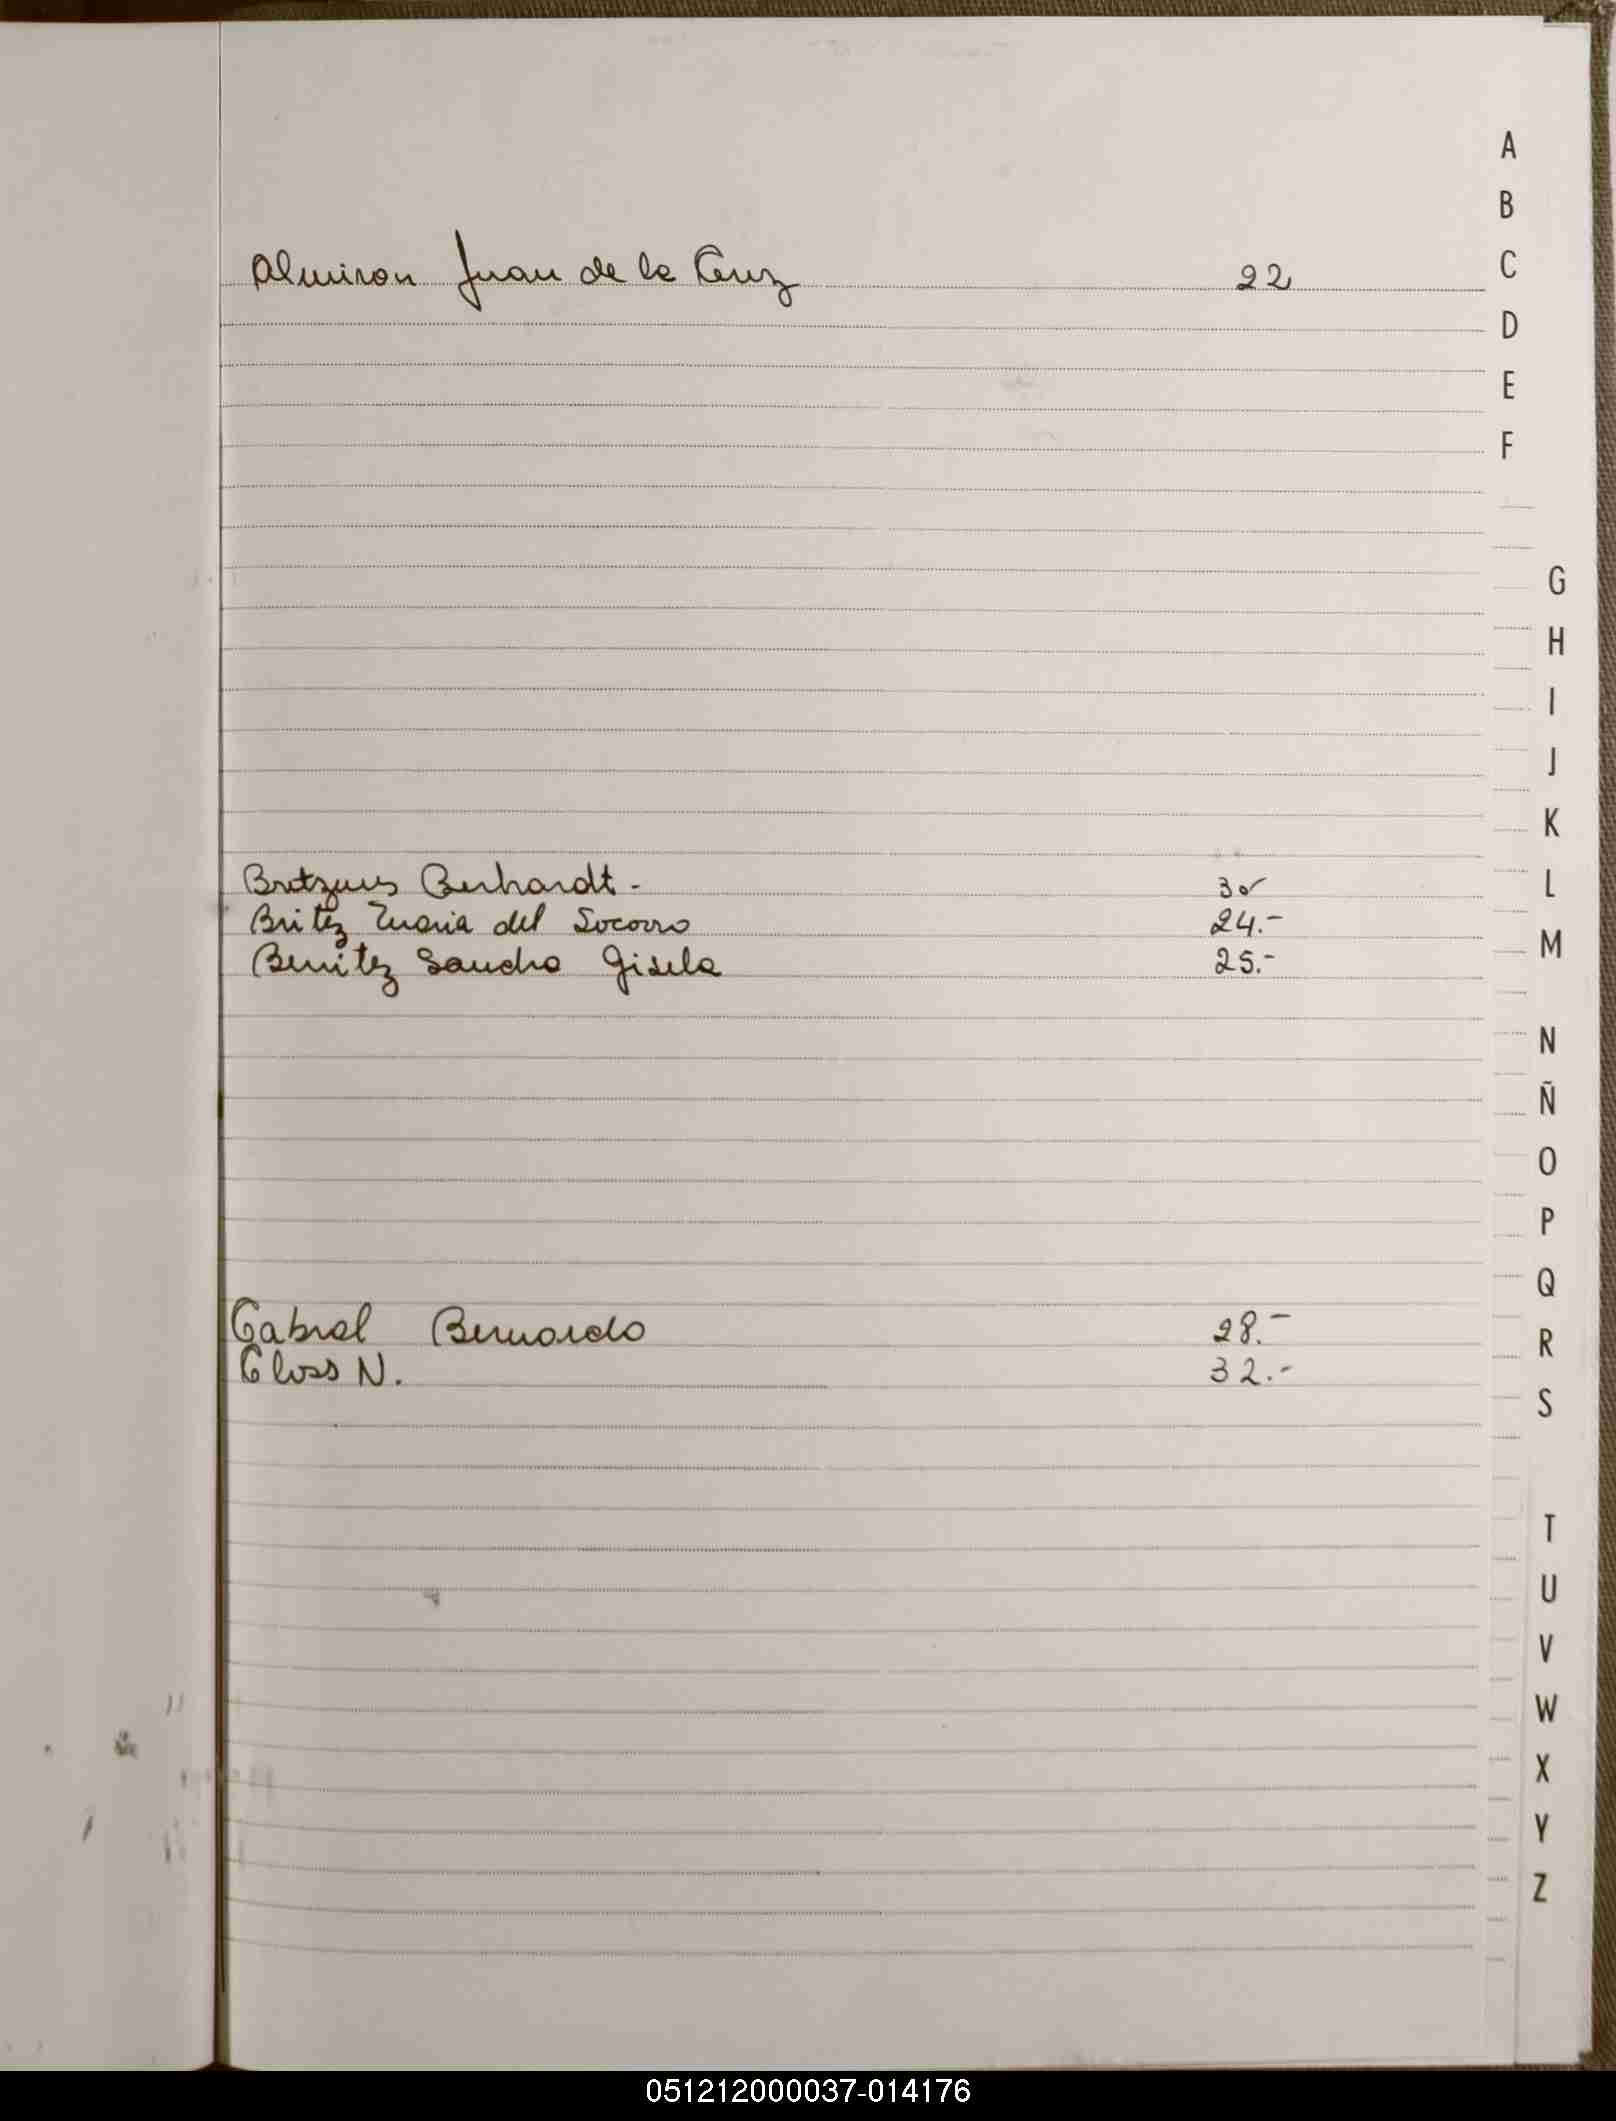 Almiron Juan de la Cruz 22
Berhardt -
Britez Maria del Socorro 24.-
Benitez Sandra Gisela 25.-
Cabral Bernardo 28.-
Closs N. 32.-
A
B
C
D
E
F
G
H
I
J
K
L
M
N
Ñ
O
P
Q
R
S
T
U
V
W
X
Y
Z
051212000037-014176